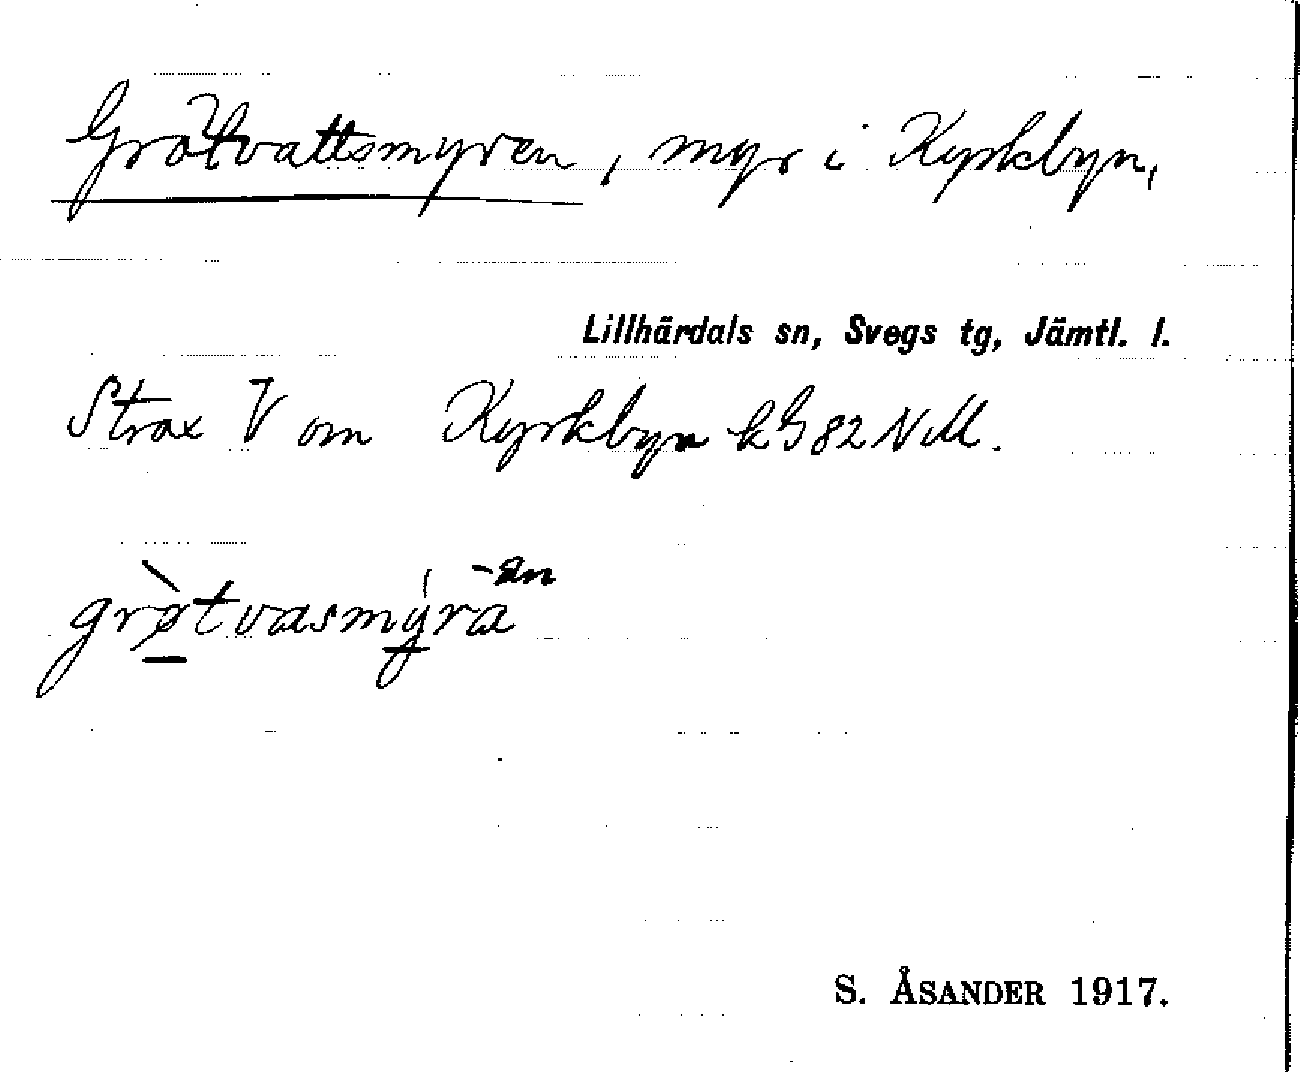 Grötvattsmyren, myr i Kyrkbyn,
Lillhärdals sn, Svegs tg, Jämtl. l.
Strax V om Kyrkbyn kG82NM.
-än
grø̀tvasmýra
S. ÅSANDER 1917.